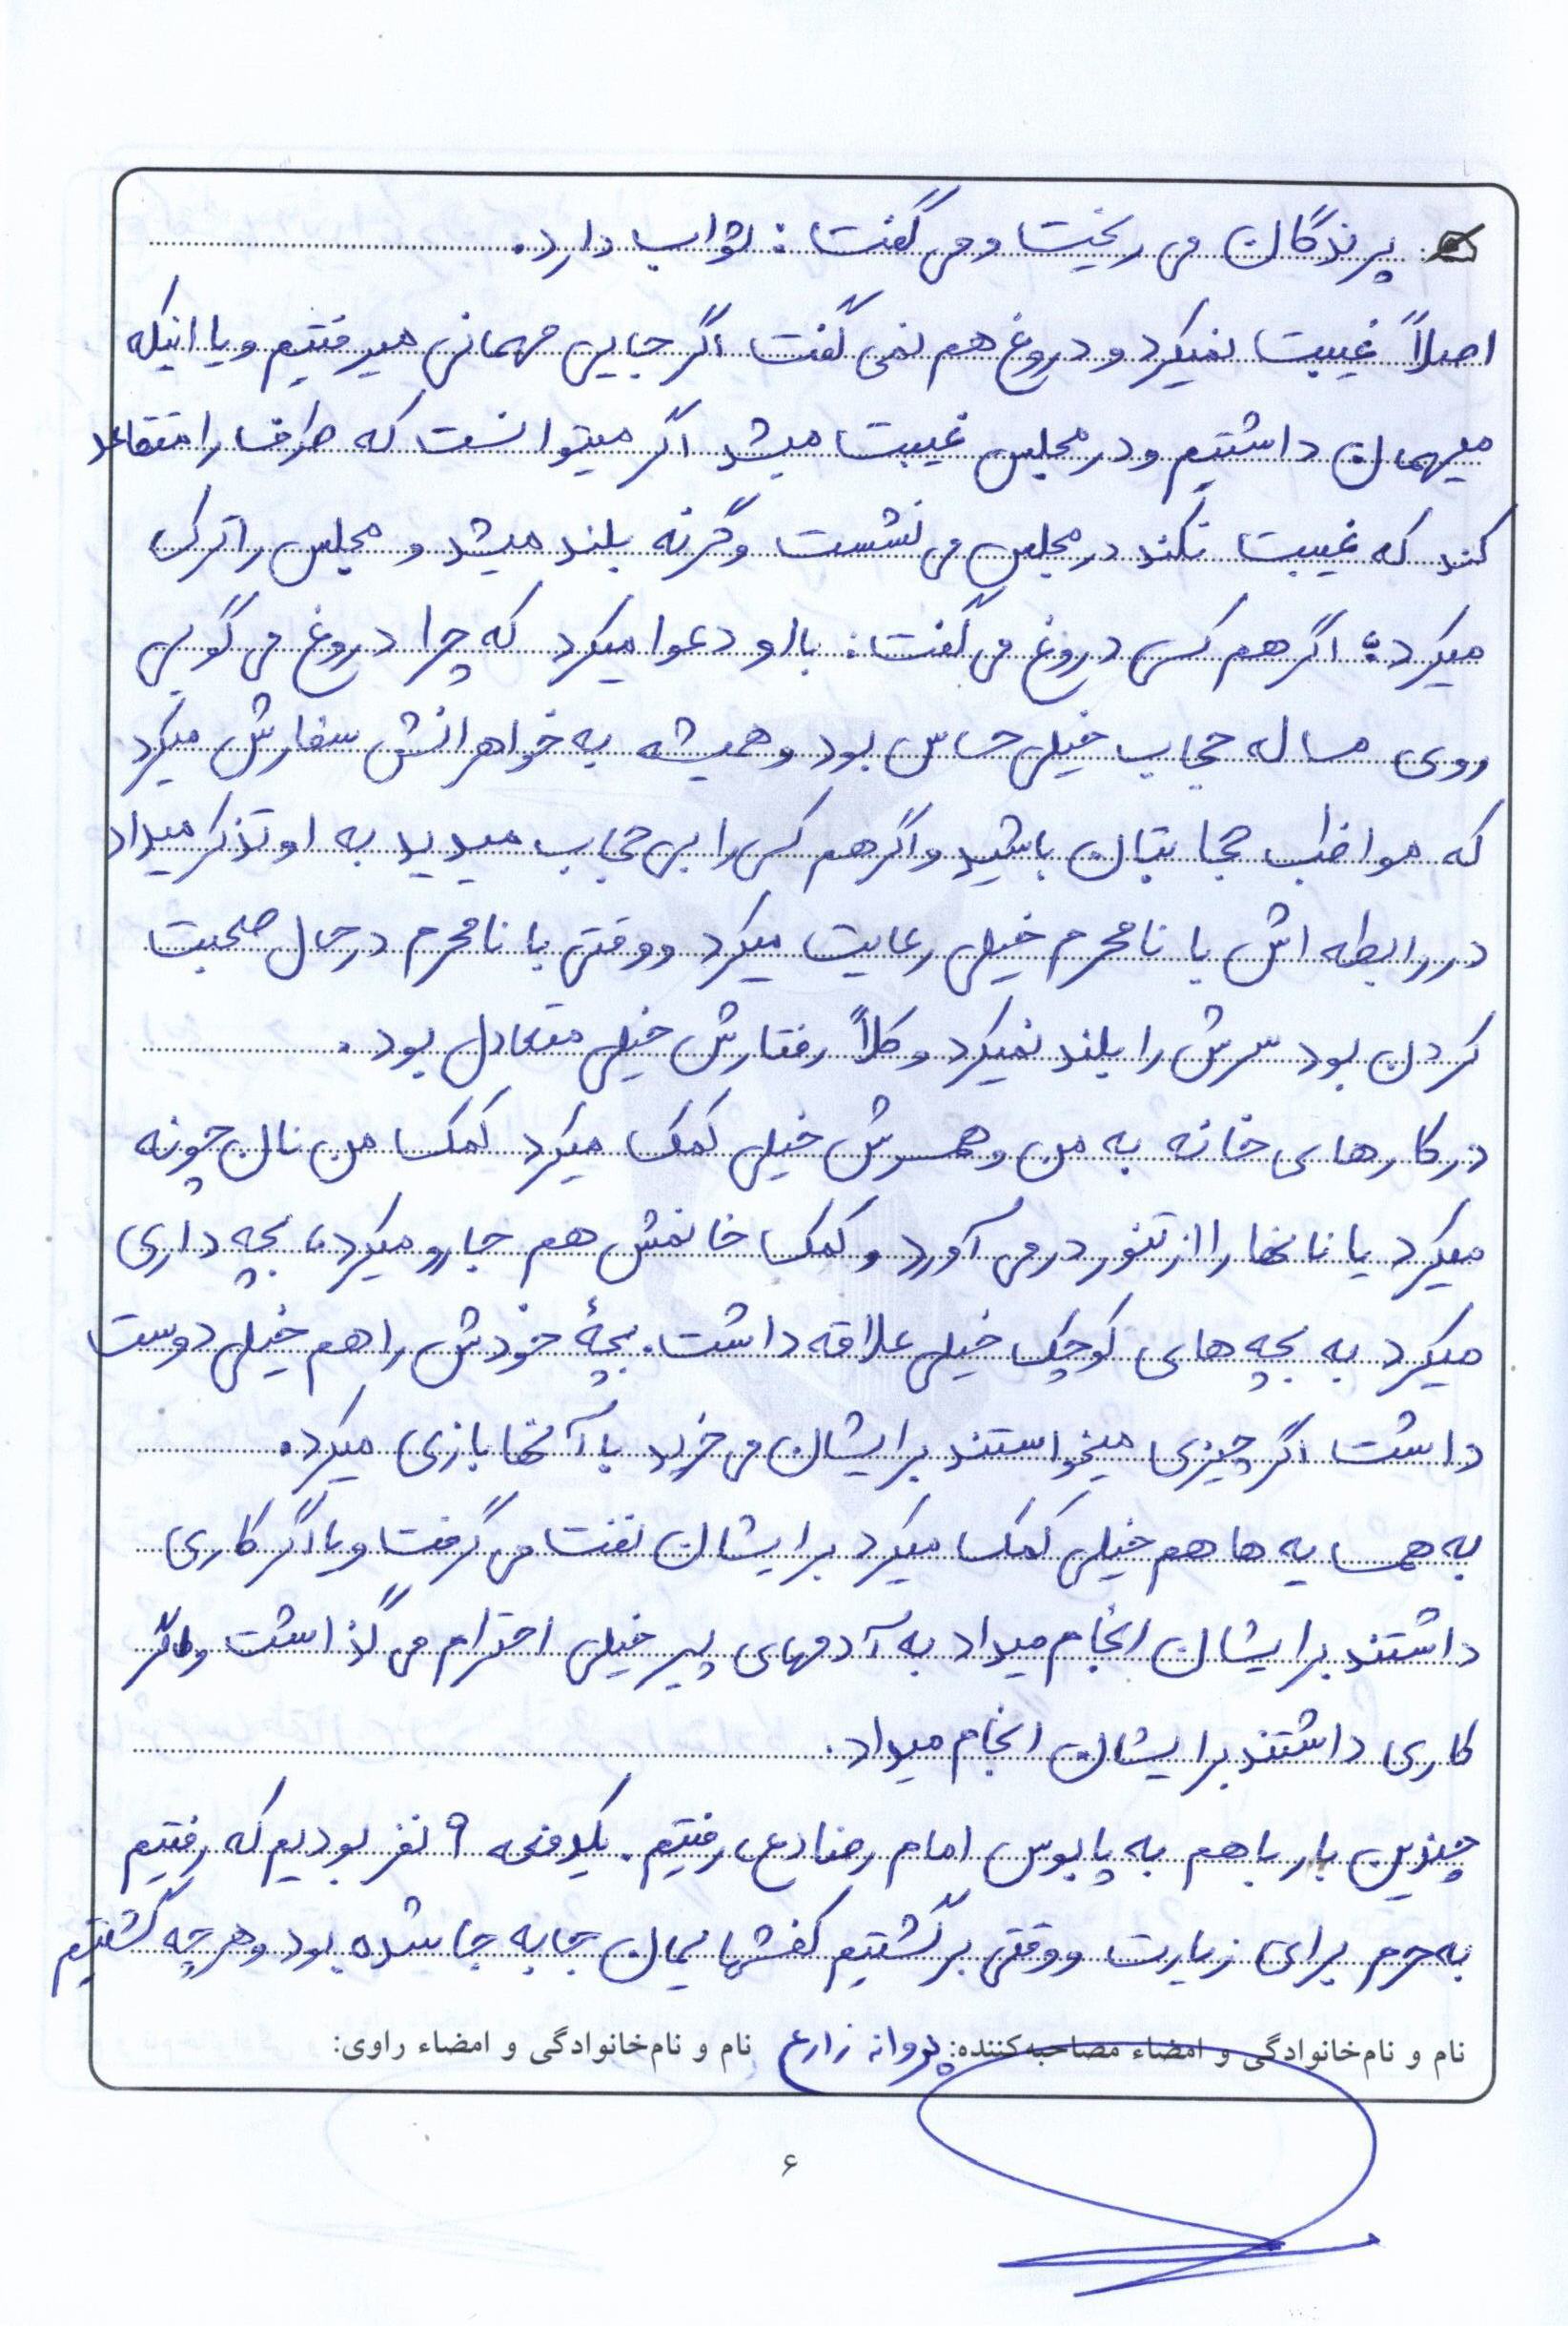 پرندگان می ریخت و می گفت : ثواب دارد.
اصلاً غیبت نمیکرد و دروغ هم نمی گفت اگر جایی مهمانی میرفتیم و یا اینکه
میهمان داشتیم و در مجلس غیبت میشد اگر میتوانست که طرف را متقاعد
کند که غیبت نکند در مجلس می نشست وگرنه بلند میشد و مجلس را ترک
میکرد؛ اگر هم کسی دروغ می گفت: با او دعوا میکرد که چرا دروغ می گویی
روی مساله حجاب خیلی حساس بود و همیشه به خواهرانش سفارش میکرد
که مواظب حجابتان باشید و اگر هم کسی را بی حجاب میدید به او تذکر میداد
در رابطه اش با نامحرم خیلی رعایت میکرد و وقتی با نامحرم در حال صحبت
کردن بود سرش را بلند نمیکرد و کلاً رفتارش خیلی متعادل بود.
در کارهای خانه به من و همسرش خیلی کمک میکرد کمک من نان چونه
میکرد یا نانها را از تنور در می آورد و کمک خانمش هم جارو میکرد، بچه داری
میکرد به بچه های کوچک خیلی علاقه داشت. بچۀ خودش را هم خیلی دوست
داشت اگر چیزی میخواستند برایشان می خرید با آنها بازی میکرد.
به همسایه ها هم خیلی کمک میکرد برایشان نفت می گرفت و یا اگر کاری
داشتند برایشان انجام میداد به آدمهای پیر خیلی احترام می گذاشت و اگر
کاری داشتند برایشان انجام میداد.
چندین بار با هم به پابوس امام رضا (ع) رفتیم. یکدفعه ۹ نفر بودیم که رفتیم
به حرم برای زیارت و وقتی برگشتیم کفشهایمان جا به جا شده بود و هر چه گشتیم
نام و نام‌خانوادگی و امضاء مصاحبه‌کننده: پروانه زارع نام و نام‌خانوادگی و امضاء راوی:
۶